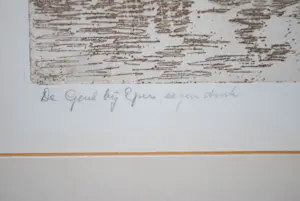 De Geul bij Epen eigen druk